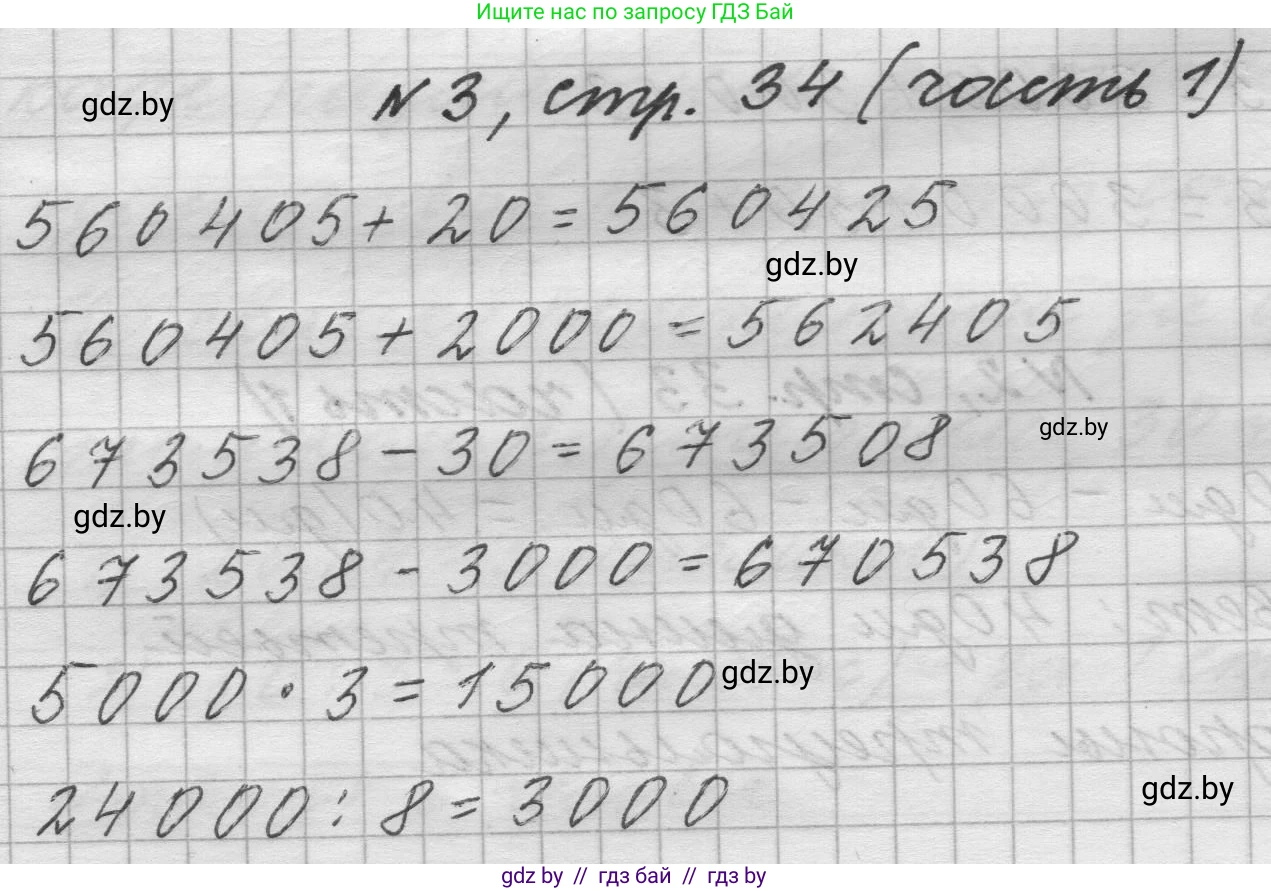 Ищите нас по запросу ГДЗ Бай
gdz.by
№3, стр. 34 (часть 1)
560405 + 20 = 560425
gdz.by
560405 + 2000 = 562405
673538 - 30 = 673508
gdz.by
gdz.by
673538 - 3000 = 670538
5000 · 3 = 15000
gdz.by
24000 : 8 = 3000
gdz.by
gdz by // гдз бай // гдз by